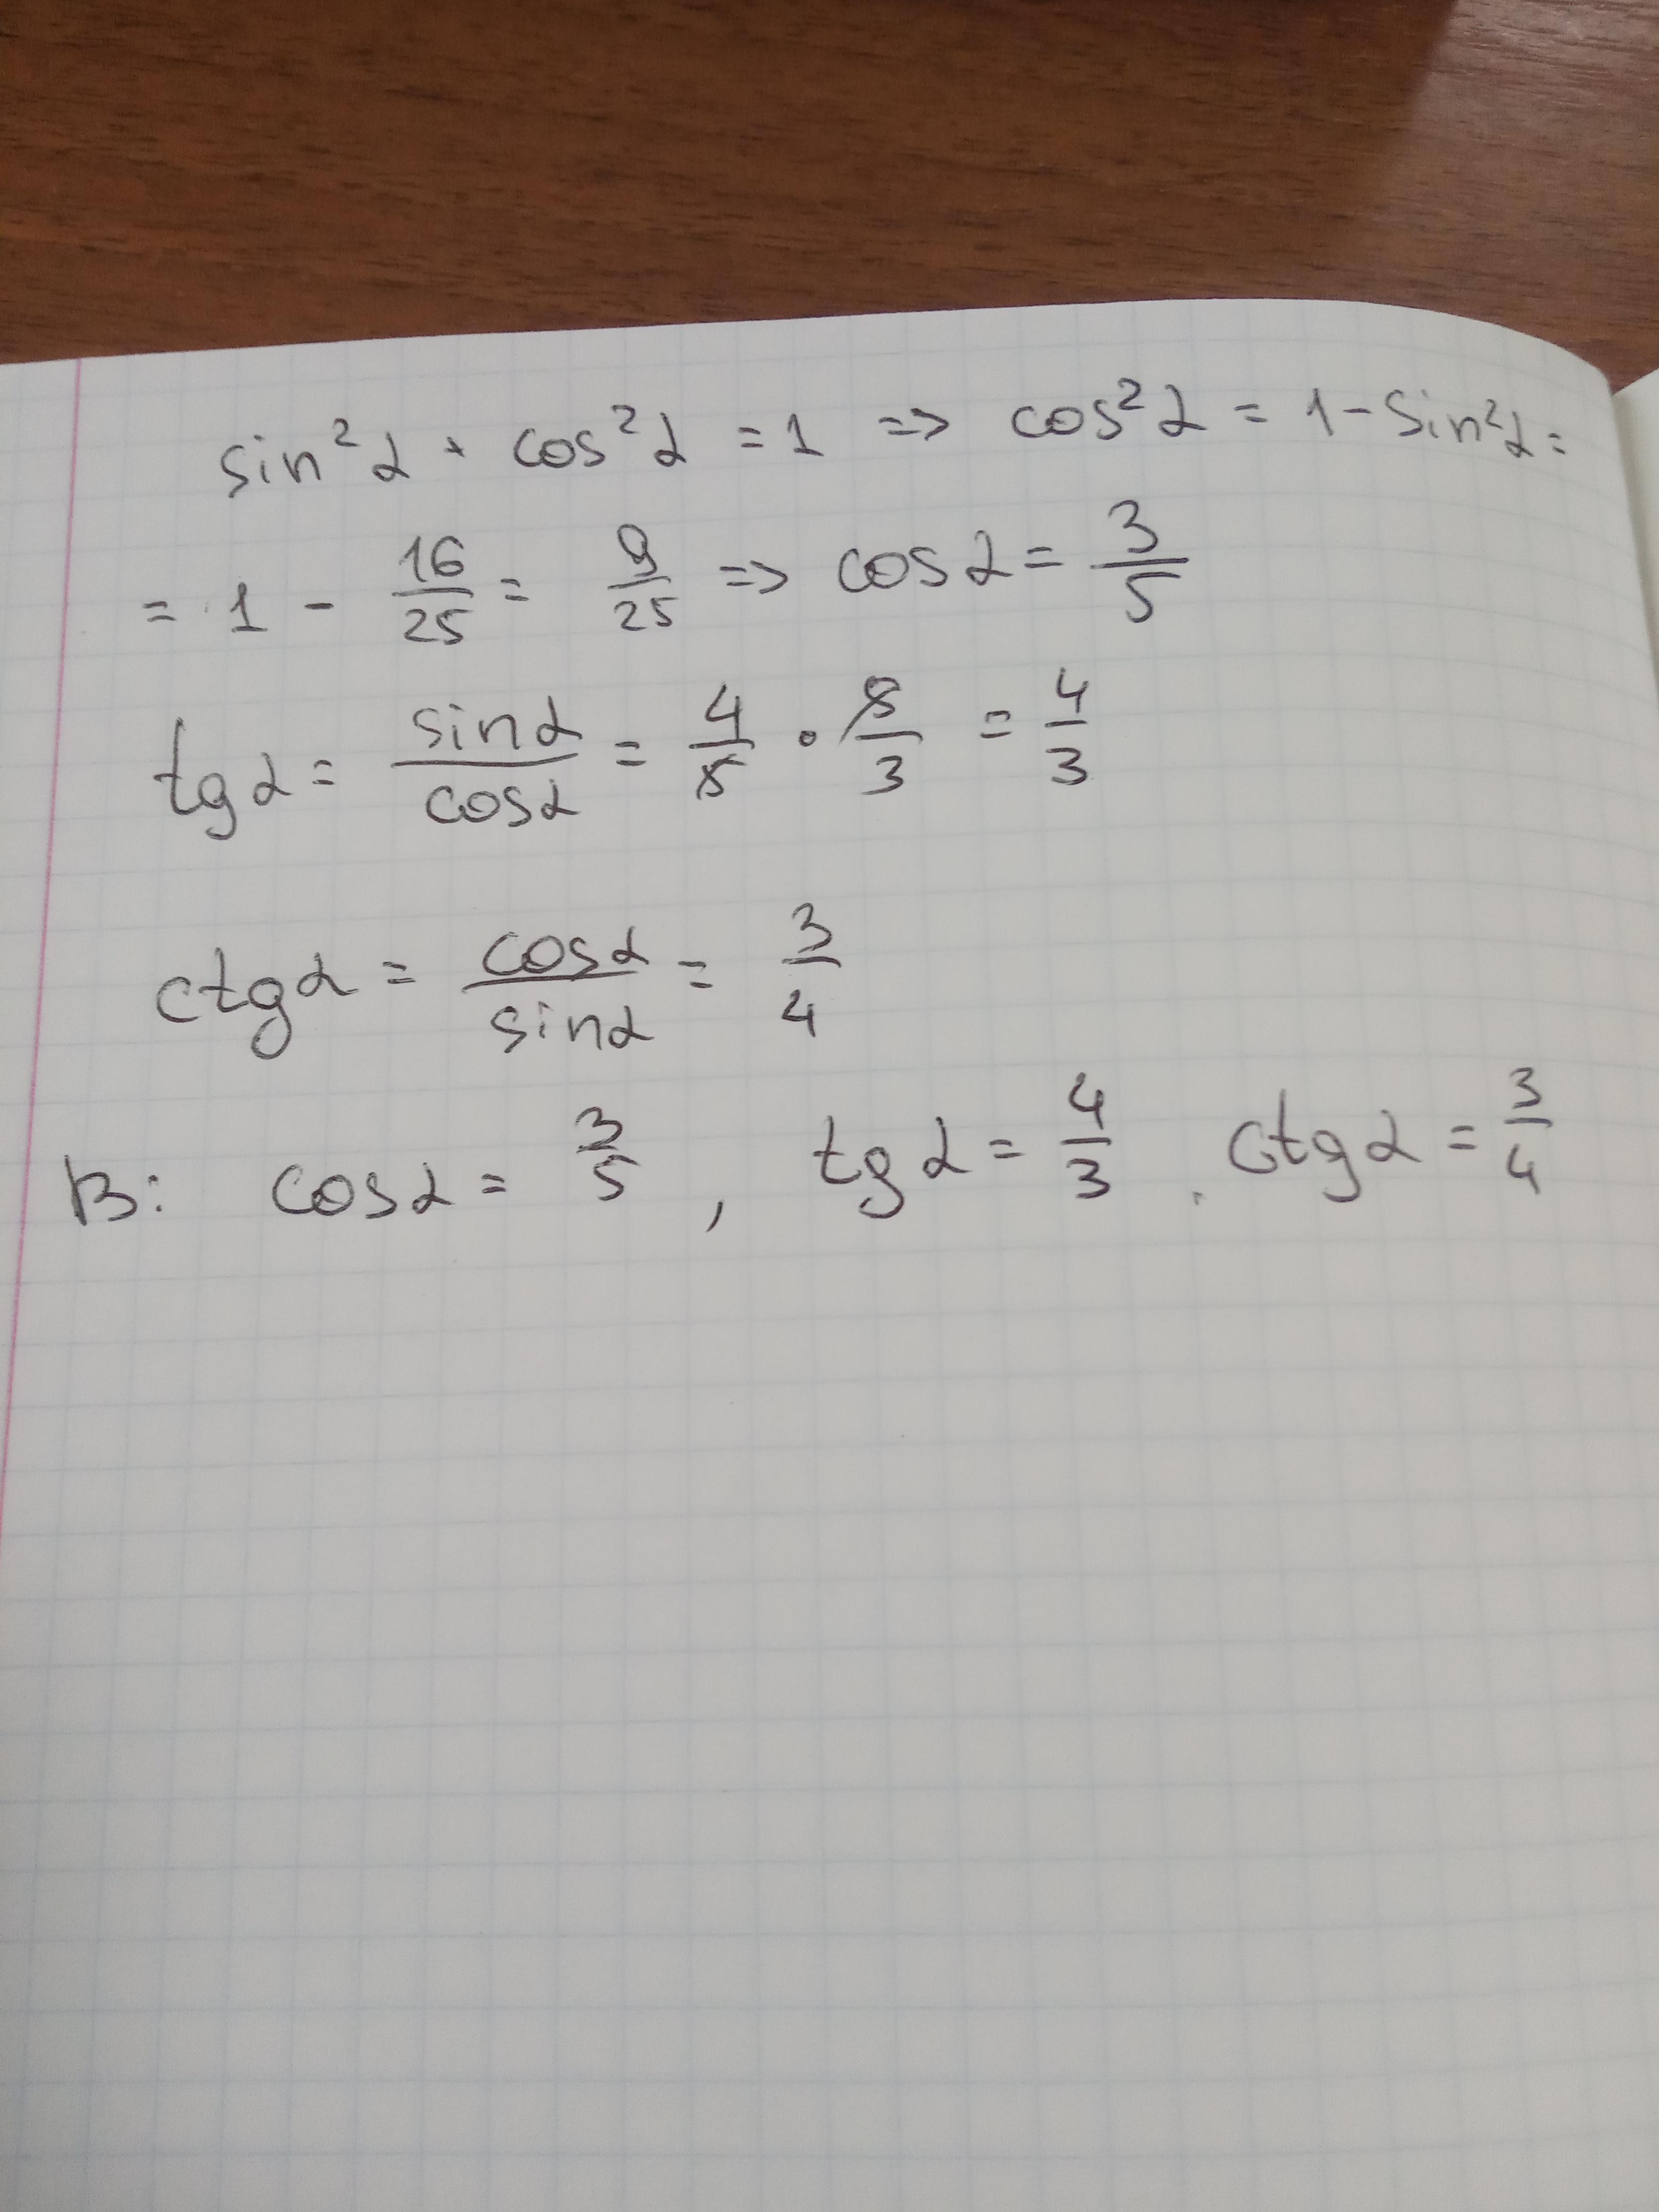 sin²α + cos²α = 1 => cos²α = 1 - sin²α =
= 1 - 16/25 = 9/25 => cosα = 3/5
tgα = sinα/cosα = 4/5 · 5/3 = 4/3
ctgα = cosα/sinα = 3/4
В: cosα = 3/5, tgα = 4/3, ctgα = 3/4